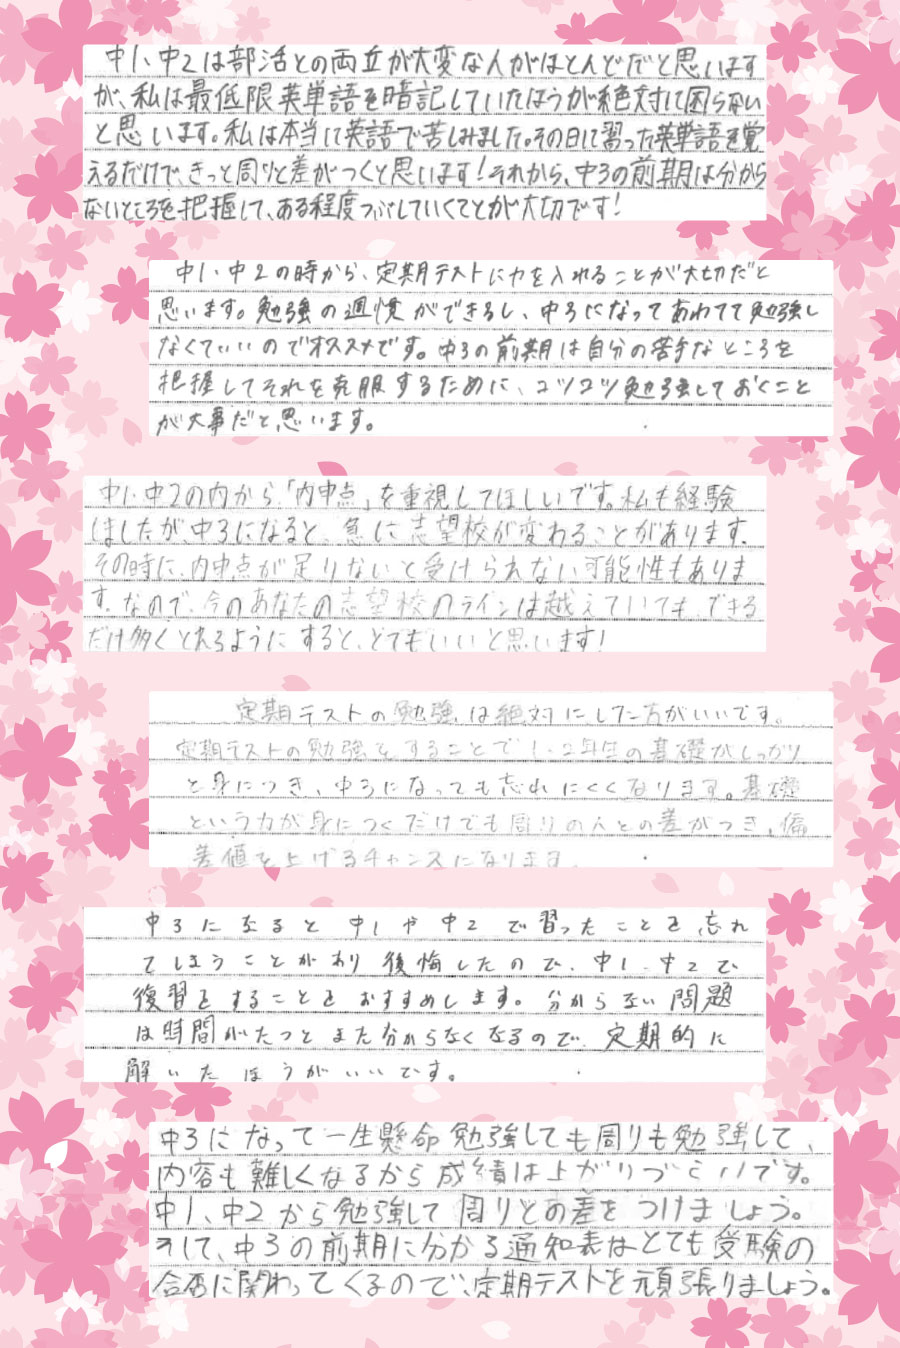 中1、中2は部活との両立が大変な人がほとんどだと思います
が、私は最低限英単語を暗記していたほうが絶対に困らない
と思います。私は本当に英語で苦しみました。その日に習った英単語を覚
えるだけで、きっと周りと差がつくと思います!それから、中3の前期は分から
ないところを把握して、ある程度つぶしていくことが大切です!
中1・中2の時から、定期テストに力を入れることが大切だと
思います。勉強の週慣ができるし、中3になってあわてて勉強し
なくていいのでオススメです。中3の前期は自分の苦手なところを
把握してそれを克服するために、コツコツ勉強しておくこと
が大事だと思います。
中1・中2の内から、「内申点」を重視してほしいです。私も経験
しましたが、中3になると、急に志望校が変わることがあります。
その時に、内申点が足りないと受けられない可能性もありま
す。なので、今のあなたの志望校のラインは越えていても、できる
だけ多くとれるようにすると、とてもいいと思います!
定期テストの勉強は絶対にした方がいいです。
定期テストの勉強をすることで1・2年生の基礎がしっかり
と身につき、中3になっても忘れにくくなります。基礎
という力が身につくだけでも周りの人との差がつき、偏
差値を上げるチャンスになります。
中3になると中1や中2で習ったことを忘れ
てしまうことがあり後悔したので、中1、中2で
復習をすることをおすすめします。分からない問題
は時間がたつとまた分からなくなるので、定期的に
解いたほうがいいです。
中3になって一生懸命勉強しても周りも勉強して、
内容も難しくなるから成績は上がりづらいです。
中1、中2から勉強して周りとの差をつけましょう。
そして、中3の前期に分かる通知表はとても受験の
合否に関わってくるので、定期テストを頑張りましょう。